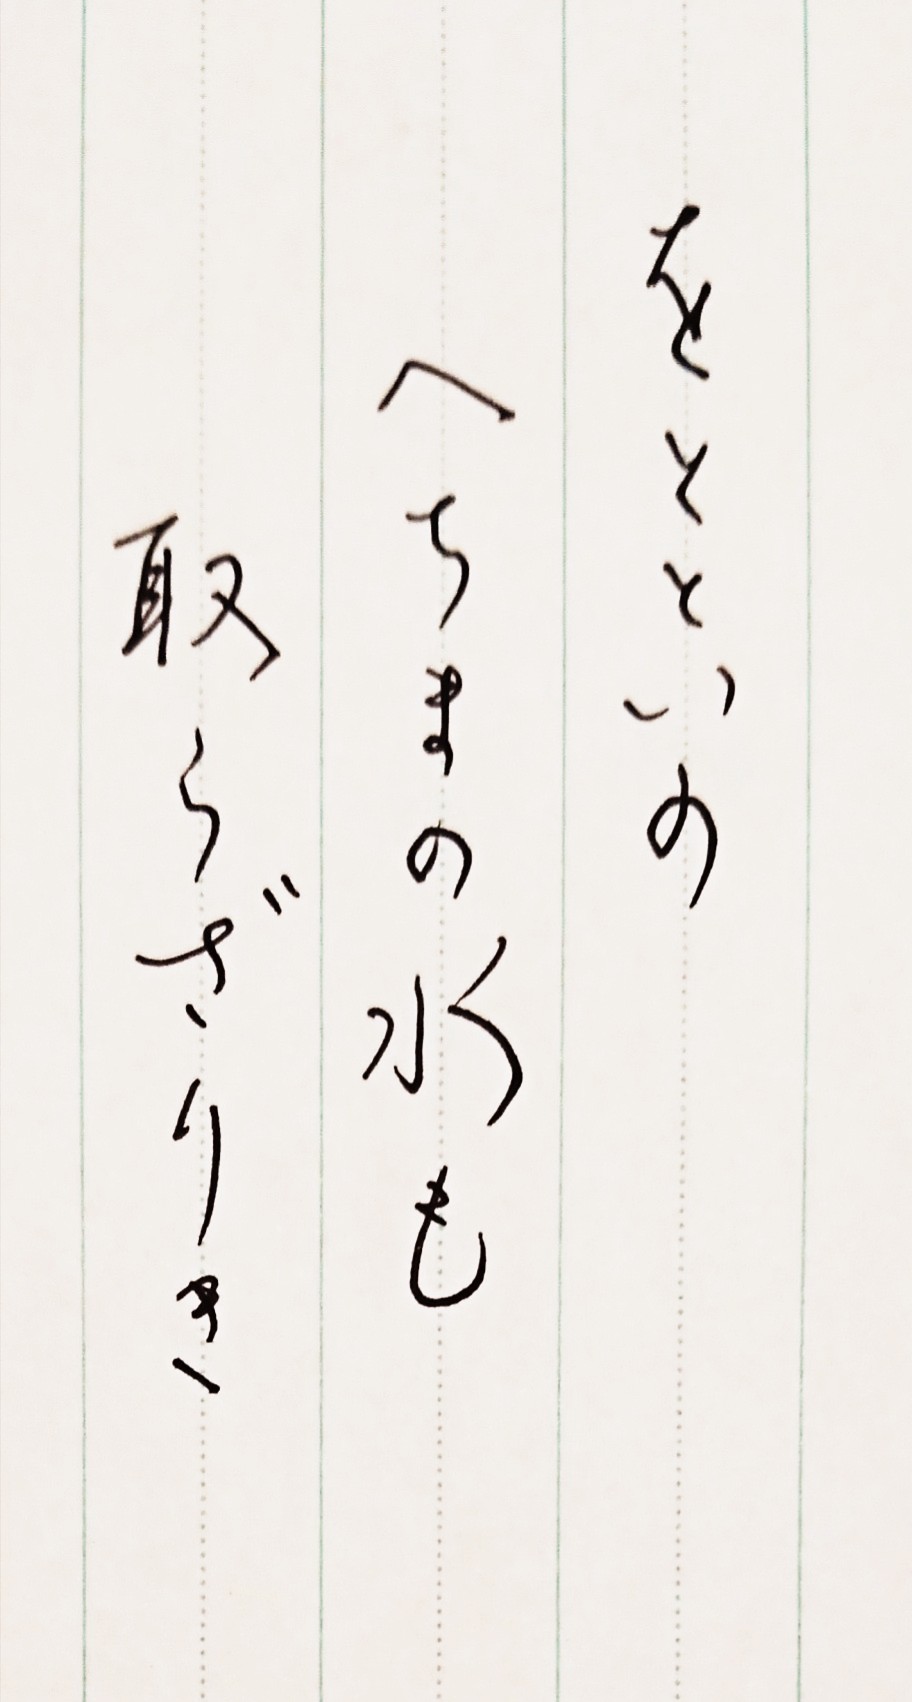 をとといの
へちまの水も
取らざりき